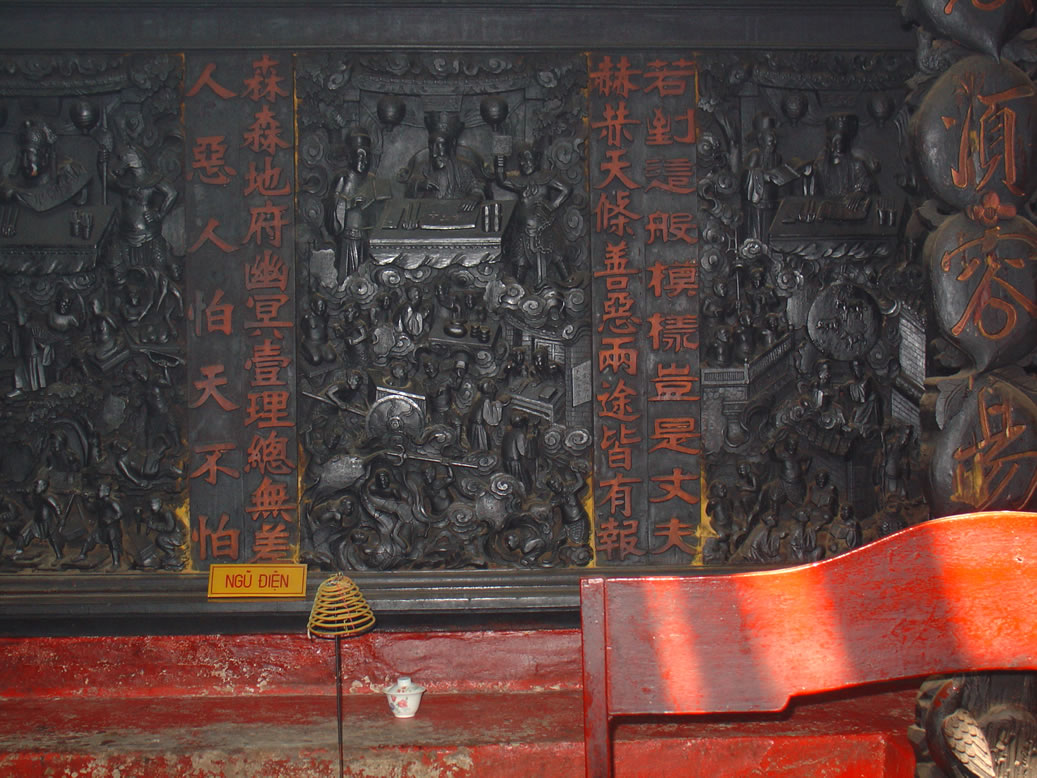 湏容
若到這般模樣豈是丈夫
赫赫天條善惡兩途皆有報
森森地府幽冥壹理總無差
人惡人怕天不怕
NGŨ ĐIỆN